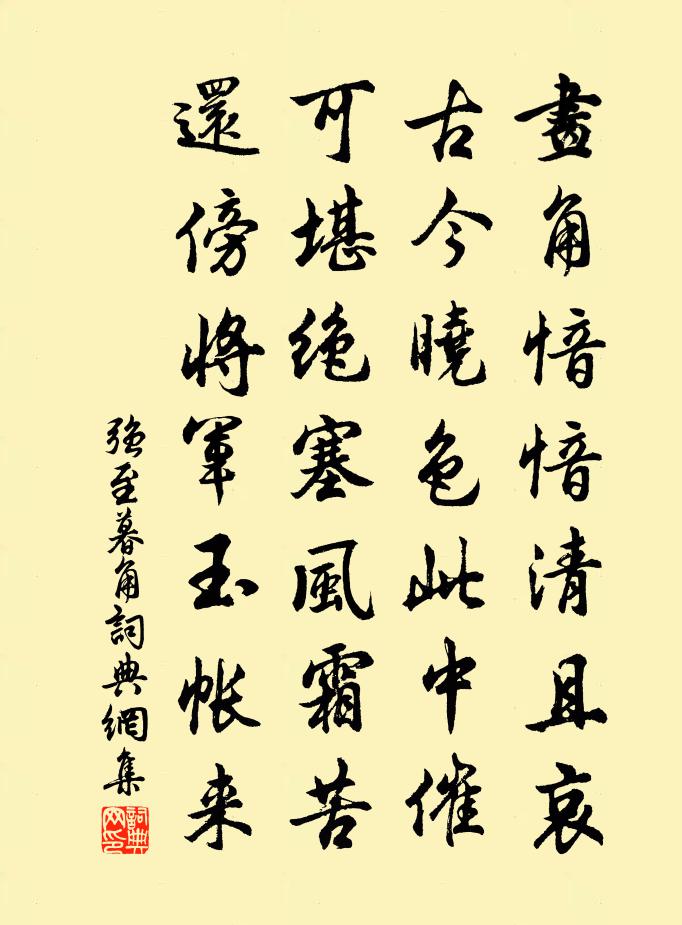 畫角愔愔清且哀
古今曉色此中催
可堪绝塞風霜苦
還傍將軍玉帐来
强至暮角詞典網集
詞典網印